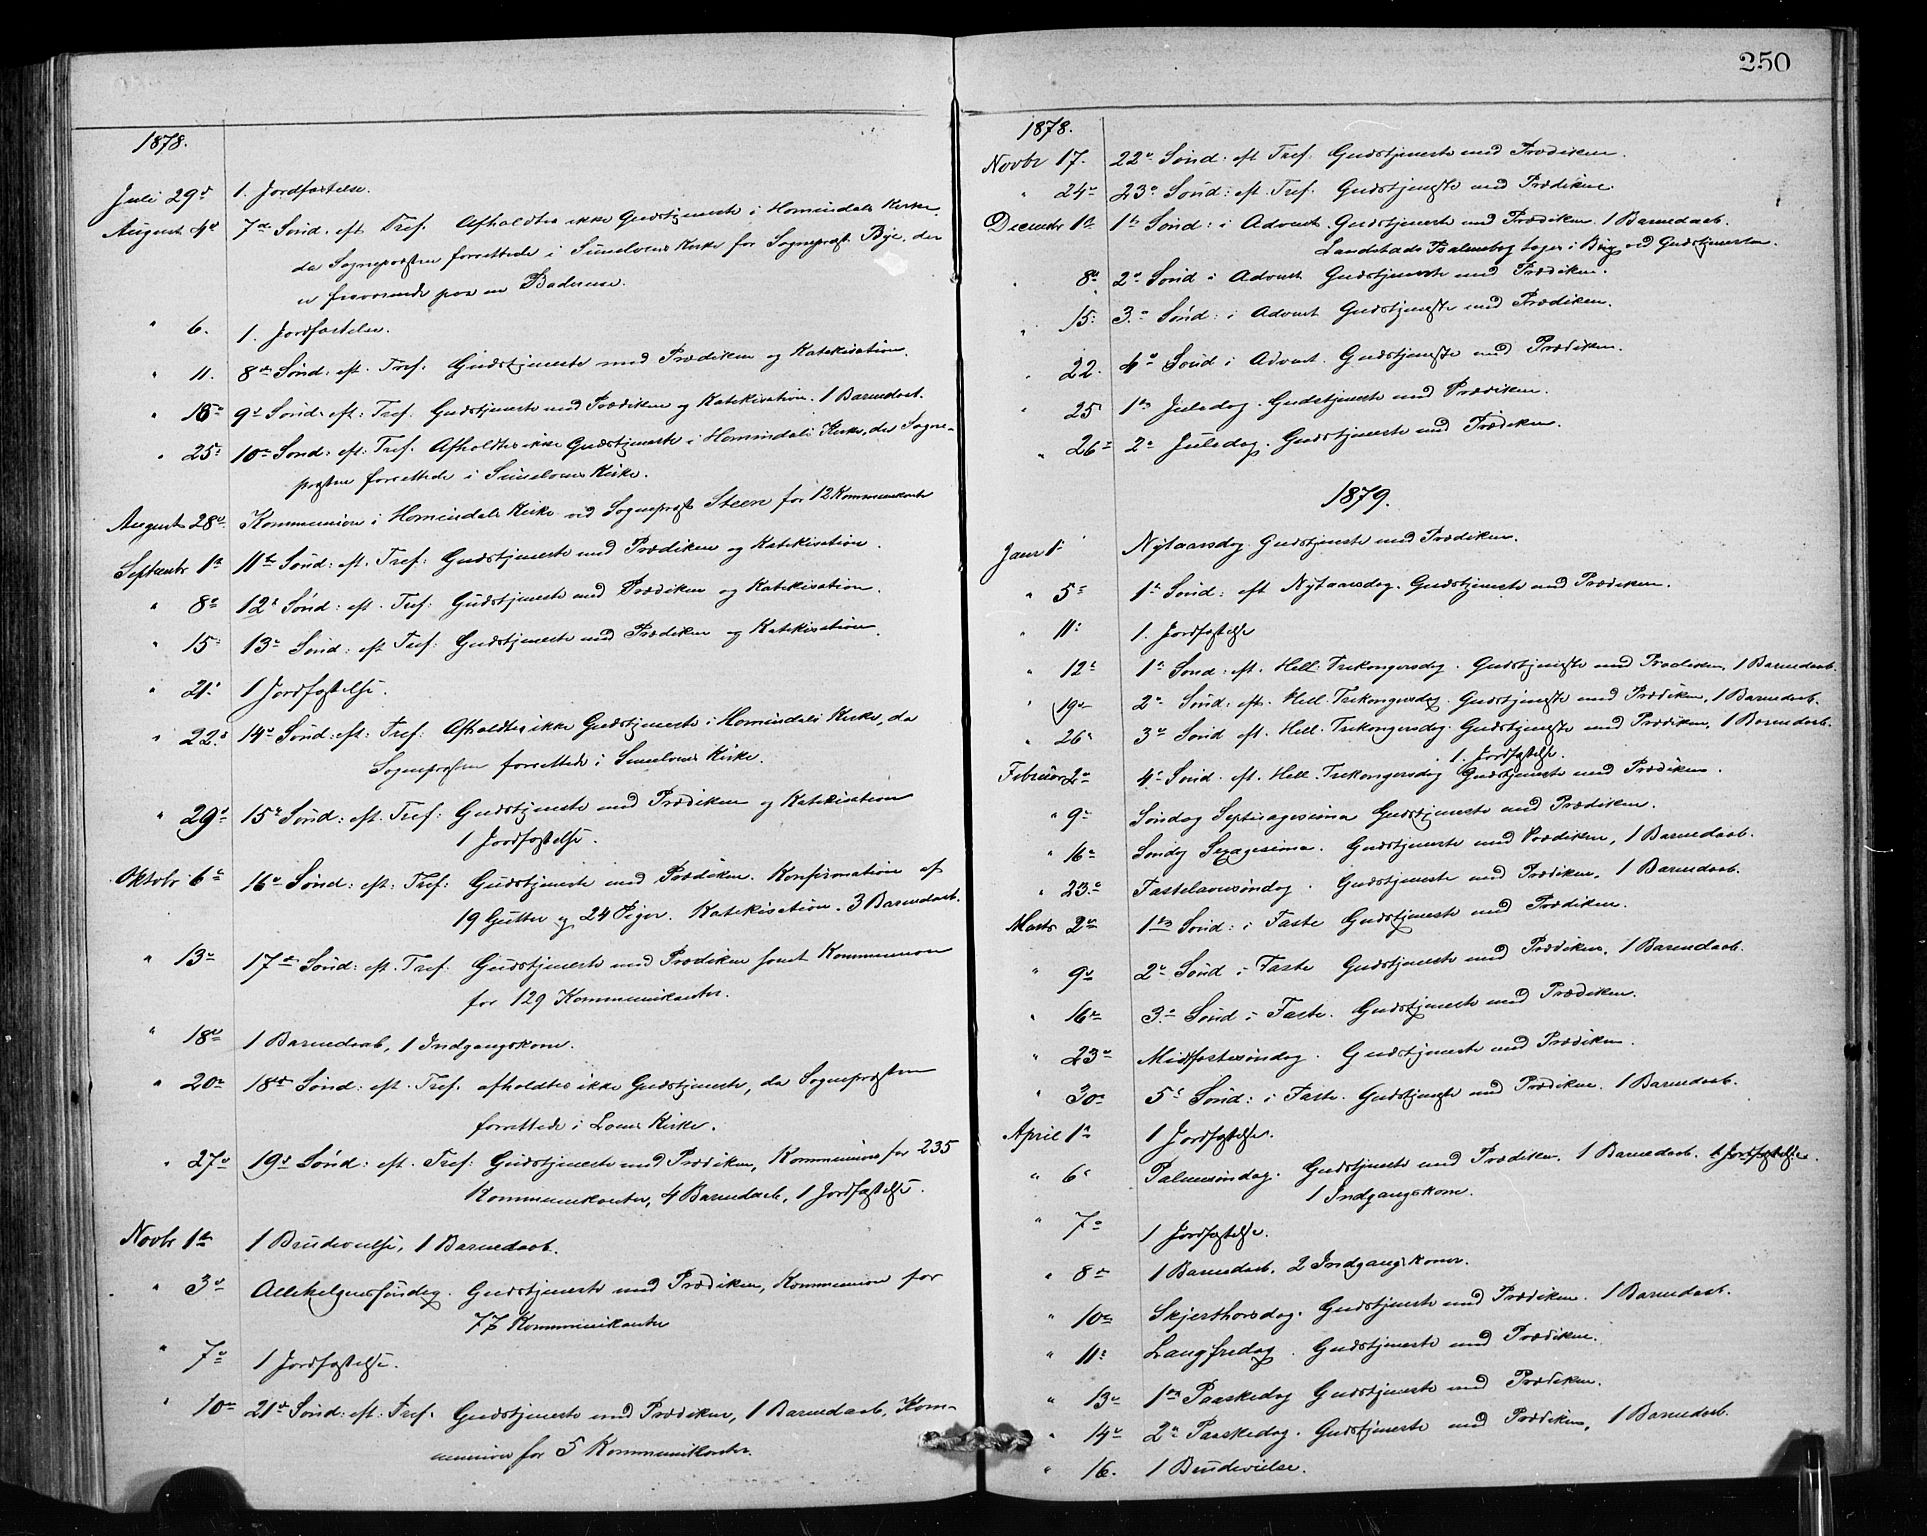 1878.
Juli 29d 1. Jordfæstelse.
August 4d 7de Sønd. eft. Tref. Afholdtes ikke Gudstjeneste i Hornindals Kirke,
da Sognepræsten forrettede i Sunelvens Kirke for Sognepræst Bye, der
er fraværende paa en Badereise.
" 6. 1. Jordfæstelse.
" 11. 8de Sønd: eft. Tref. Gudstjeneste med Prædiken og Katekisation.
" 18de 9d Sønd: eft: Tref. Gudstjeneste med Prædiken og Katekisation. 1 Barnedaab.
" 25: 10de Sønd: eft: Tref. Afholdtes ikke Gudstjeneste i Hornindals Kirke, da Sogne-
præsten forrettede i Sunelvens Kirke.
August 28de Kommunion i Hornindals Kirke ved Sognepræst Steen for 12 Kommunikanter
Septembr 1ste 11te Sønd: eft. Tref: Gudstjeneste med Prædiken og Katekisation.
" 8de 12te Sønd: eft. Tref: Gudstjeneste med Prædiken og Katekisation.
" 15: 13de Sønd: eft Tref: Gudstjeneste med Prædiken og Katekisation.
" 21: 1 Jordfæstelse.
" 22: 14de Sønd: eft: Tref: Afholdtes ikke Gudstjeneste i Hornindals Kirke, da
Sognepræsten forrettede i Sunelvens Kirke.
" 29de 15de Sønd: eft. Tref: Gudstjeneste med Prædiken og Katekisation
1 Jordfæstelse.
Oktobr 6te 16de Sønd: eft: Tref: Gudstjeneste med Prædiken. Konfirmation af
19 Gutter og 24 Piger. Katekisation. 3 Barnedaab.
" 13de 17de Sønd: eft. Tref. Gudstjeneste med Prædiken samt Kommunion
for 129 Kommunikanter.
" 18de 1 Barnedaab, 1 Indgangskone.
" 20de 18de Sønd: eft. Tref. afholdtes ikke Gudstjeneste, da Sognepræsten
forrettede i Loens Kirke.
" 27de 19de Sønd: eft. Tref: Gudstjeneste med Prædiken, Kommunion for 235
Kommunikanter, 4 Barnedaab, 1 Jordfæstelse.
Novbr 1ste 1 Brudevielse, 1 Barnedaab.
" 3de Allehelgenssøndag. Gudstjeneste med Prædiken, Kommunion for
77 Kommunikanter
" 7de 1 Jordfæstelse.
" 10de 21de Sønd: eft: Tref. Gudstjeneste med Prædiken, 1 Barnedaab, Kom-
munion for 5 Kommunikanter.
250
1878.
Novbr 17. 22de Sønd: eft Tref. Gudstjeneste med Prædiken.
" 24de 23de Sønd: eft. Tref: Gudstjeneste med Prædiken.
Decembr 1ste 1ste Sønd: i Advent. Gudstjeneste med Prædiken. 1 Barnedaab.
Landstads Psalmebog tages i Brug ved Gudstjenesten.
" 8de 2de Sønd i Advent Gudstjeneste med Prædiken.
" 15: 3de Sønd: i Advent Gudstjeneste med Prædiken.
" 22. 4de Sønd i Advent. Gudstjeneste med Prædiken.
" 25 1ste Juledag. Gudstjeneste med Prædiken.
" 26de 2de Juledag. Gudstjeneste med Prædiken.
1879.
Janur 1: Nytaarsdag. Gudstjeneste med Prædiken.
" 5te 1ste Sønd: eft Nytaarsdag. Gudstjeneste med Prædiken.
" 11: 1. Jordfæstelse
" 12te 1ste Sønd: eft. Hell. Trekongersdag. Gudstjeneste med Prædiken, 1 Barnedaab.
" 19de 2de Sønd: eft. Hell. Trekongersdag. Gudstjeneste med Prædiken, 1 Barnedaab.
" 26de 3de Sønd eft. Hell. Trekongersdag. Gudstjeneste med Prædiken, 1 Barnedaab.
1. Jordfæstelse.
Februar 2de 4de Sønd. eft. Hell. Trekongersdag Gudstjeneste med Prædiken.
" 9de Søndag Septuagesima Gudstjeneste med Prædiken.
" 16de Søndag Sexagesima. Gudstjeneste med Prædiken, 1 Barnedaab.
" 23de Fastelavnsøndag. Gudstjeneste med Prædiken, 1 Barnedaab.
Marts 2de 1ste Sønd: i Faste Gudstjeneste med Prædiken.
" 9de 2de Sønd i Faste Gudstjeneste med Prædiken, 1 Barnedaab.
" 16de 3de Sønd i Faste. Gudstjeneste med Prædiken.
" 23de Midfastesøndag. Gudstjeneste med Prædiken.
" 30de 5te Sønd: i Faste. Gudstjeneste med Prædiken. 1 Barnedaab.
April 1ste 1 Jordfæstelse.
" 6te Palmesøndag. Gudstjeneste med Prædiken. 1 Barnedaab. 1 Jordfæstelse.
1 Indgangskone.
" 7de 1 Jordfæstelse.
" 8de 1 Barnedaab, 2 Indgangskoner.
" 10de Skjærthorsdag. Gudstjeneste med Prædiken. 1 Barnedaab.
" 11te Langfredag. Gudstjeneste med Prædiken.
" 13de 1ste Paaskedag Gudstjeneste med Prædiken.
" 14de 2de Paaskedag. Gudstjeneste med Prædiken, 1 Barnedaab.
" 16. 1 Brudevielse.